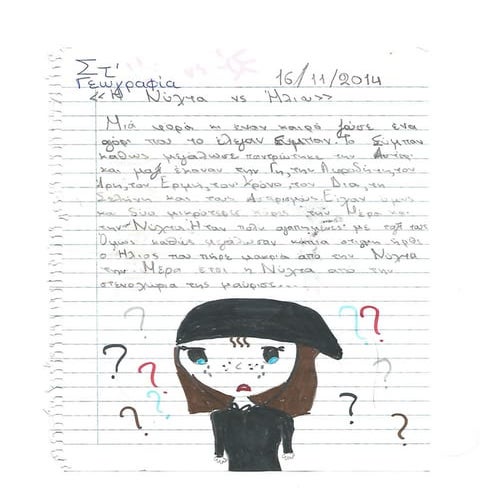 Στ'
Γεωγραφία 16/11/2014
<<Η Νύχτα vs Ήλιου>>
Μιά φορά κι έναν καιρό ζούσε ένα
αγόρι που το έλεγαν Σύμπαν. Το Σύμπαν
καθώς μεγάλωσε παντρεύτηκε την
και μαζί έκαναν την Γη, την Αφροδίτη, τον
Άρη, τον Ερμή, τον Χρόνο, τον Δία, τη
Σελήνη και τους Αστερισμούς. Είχαν όμως
και δύο μικρότερες κόρες την Μέρα και
την Νύχτα. Ήταν πολύ αγαπημένες με
Όμως καθώς μεγάλωσαν κάποια στιγμή ήρθε
ο Ήλιος που πήρε μακριά από την Νύχτα
την Μέρα έτσι η Νύχτα από την
στενοχώρια της μαύρισε...
? ? ? ? ? ? ? ? ? ?